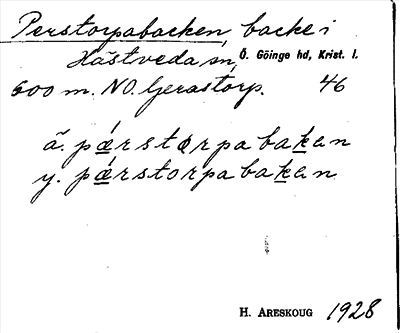 Perstorpabacken, backe i
Hästveda sn, Ö. Göinge hd, Krist. l.
600 m. NO. Gerastorp. 46
ä. pǽrstorpabaḵan
y. pǽrstorpabaḵan
H. ARESKOUG 1928